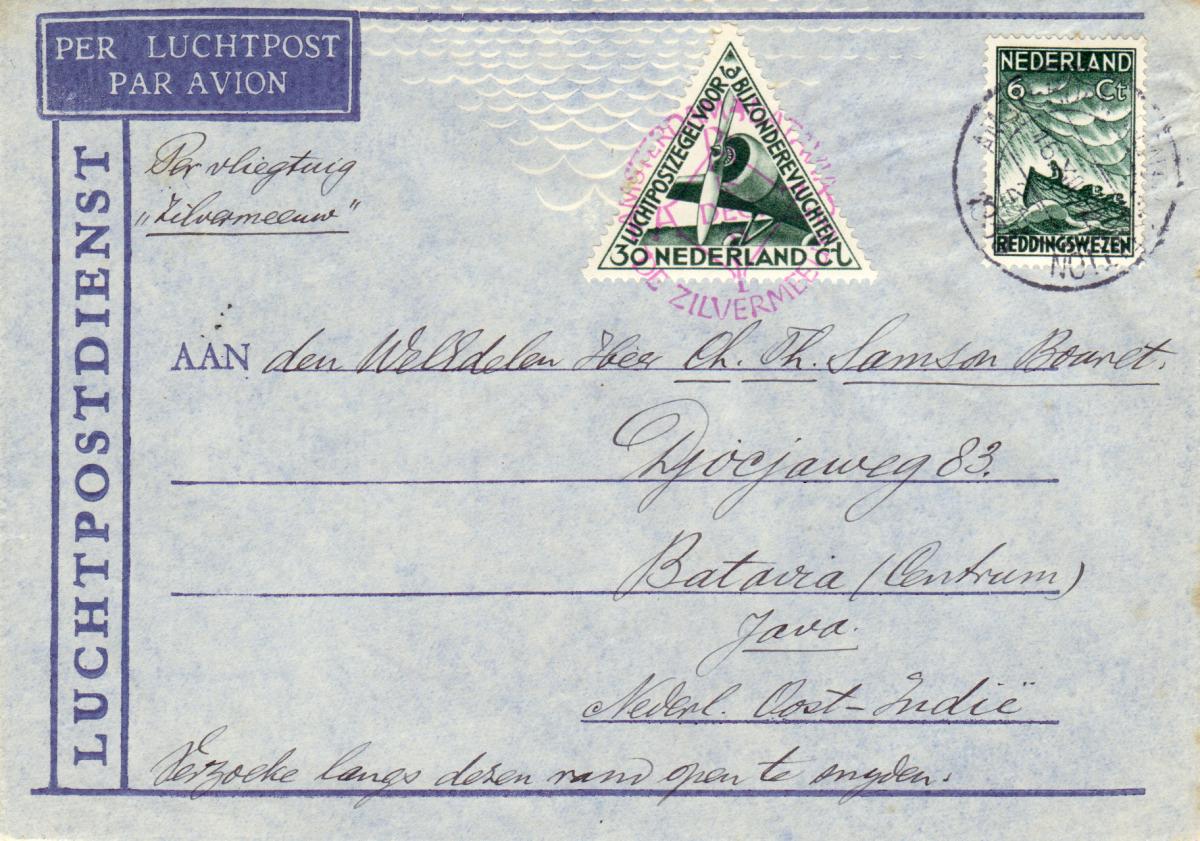 PER LUCHTPOST
PAR AVION
LUCHTPOSTDIENST
Per vliegtuig
„Zilvermeeuw"
LUCHTPOSTZEGEL VOOR
BIJZONDERE VLUCHTEN
30 NEDERLAND CT
DE ZILVERMEEUW
NEDERLAND
6 Ct
REDDINGSWEZEN
AAN den WelEdelen Heer Ch. Th. Samson Bouret.
Djocjaweg 83.
Batavia (Centrum)
Java.
Nederl. Oost-Indië
Verzoeke langs dezen rand open te snyden.